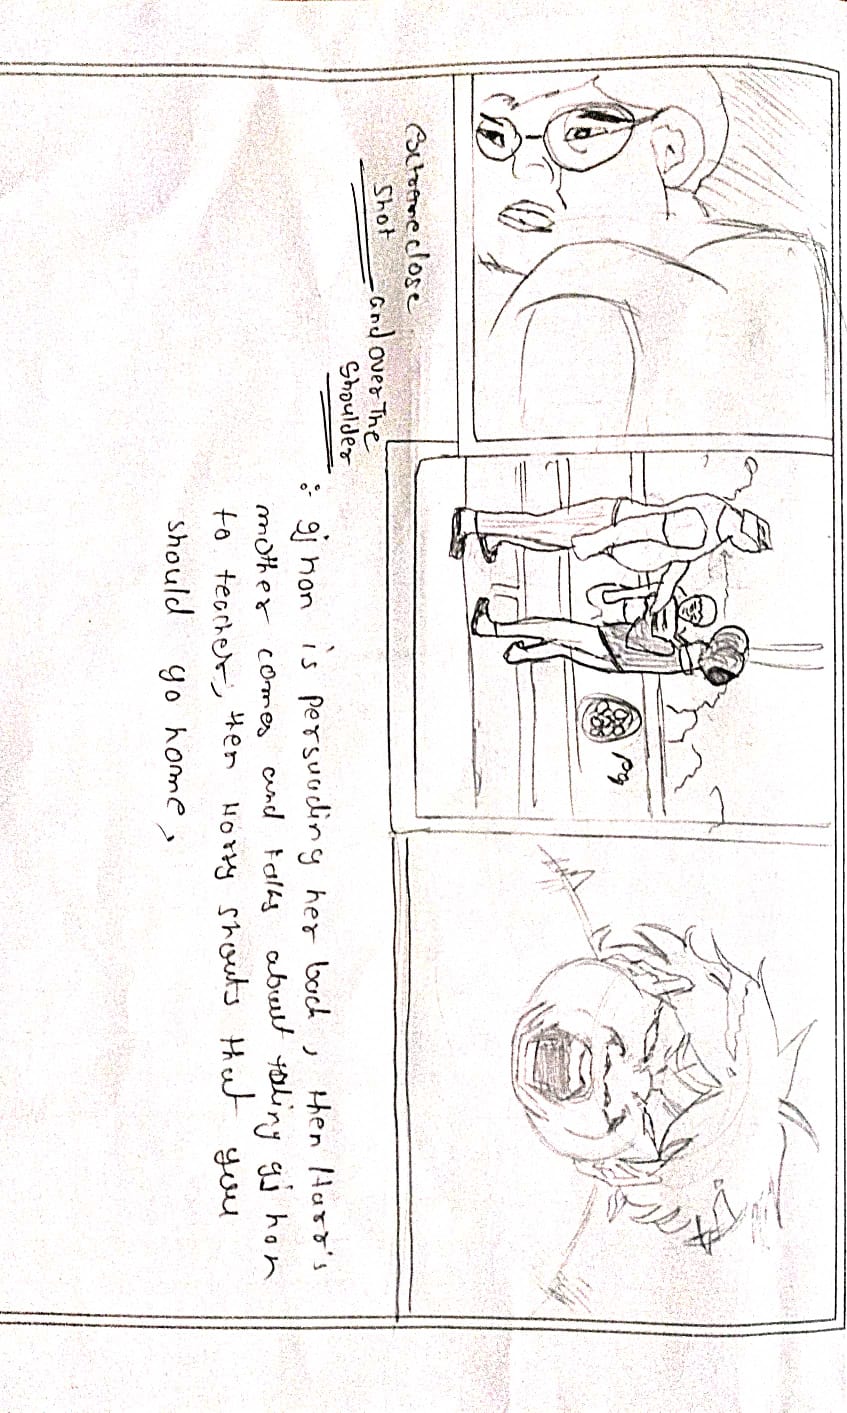 Extreme close
Shot and over The
Shoulder
: gi hon is persuading her back, then Harr's
mother comes and talks about taking gi hon
to teacher, then Harry shouts that you
should go home,